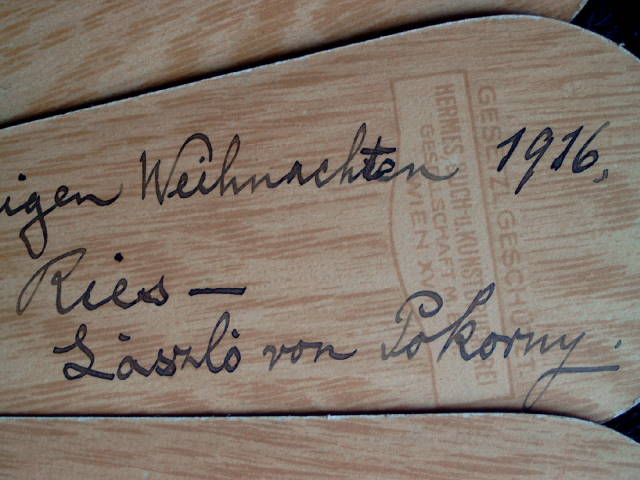 igen Weihnachten 1916,
Ries —
László von Pokorny.
GESETZL. GESCHÜTZT
HERMES BUCH u. KUNST
GESELLSCHAFT M.
WIEN